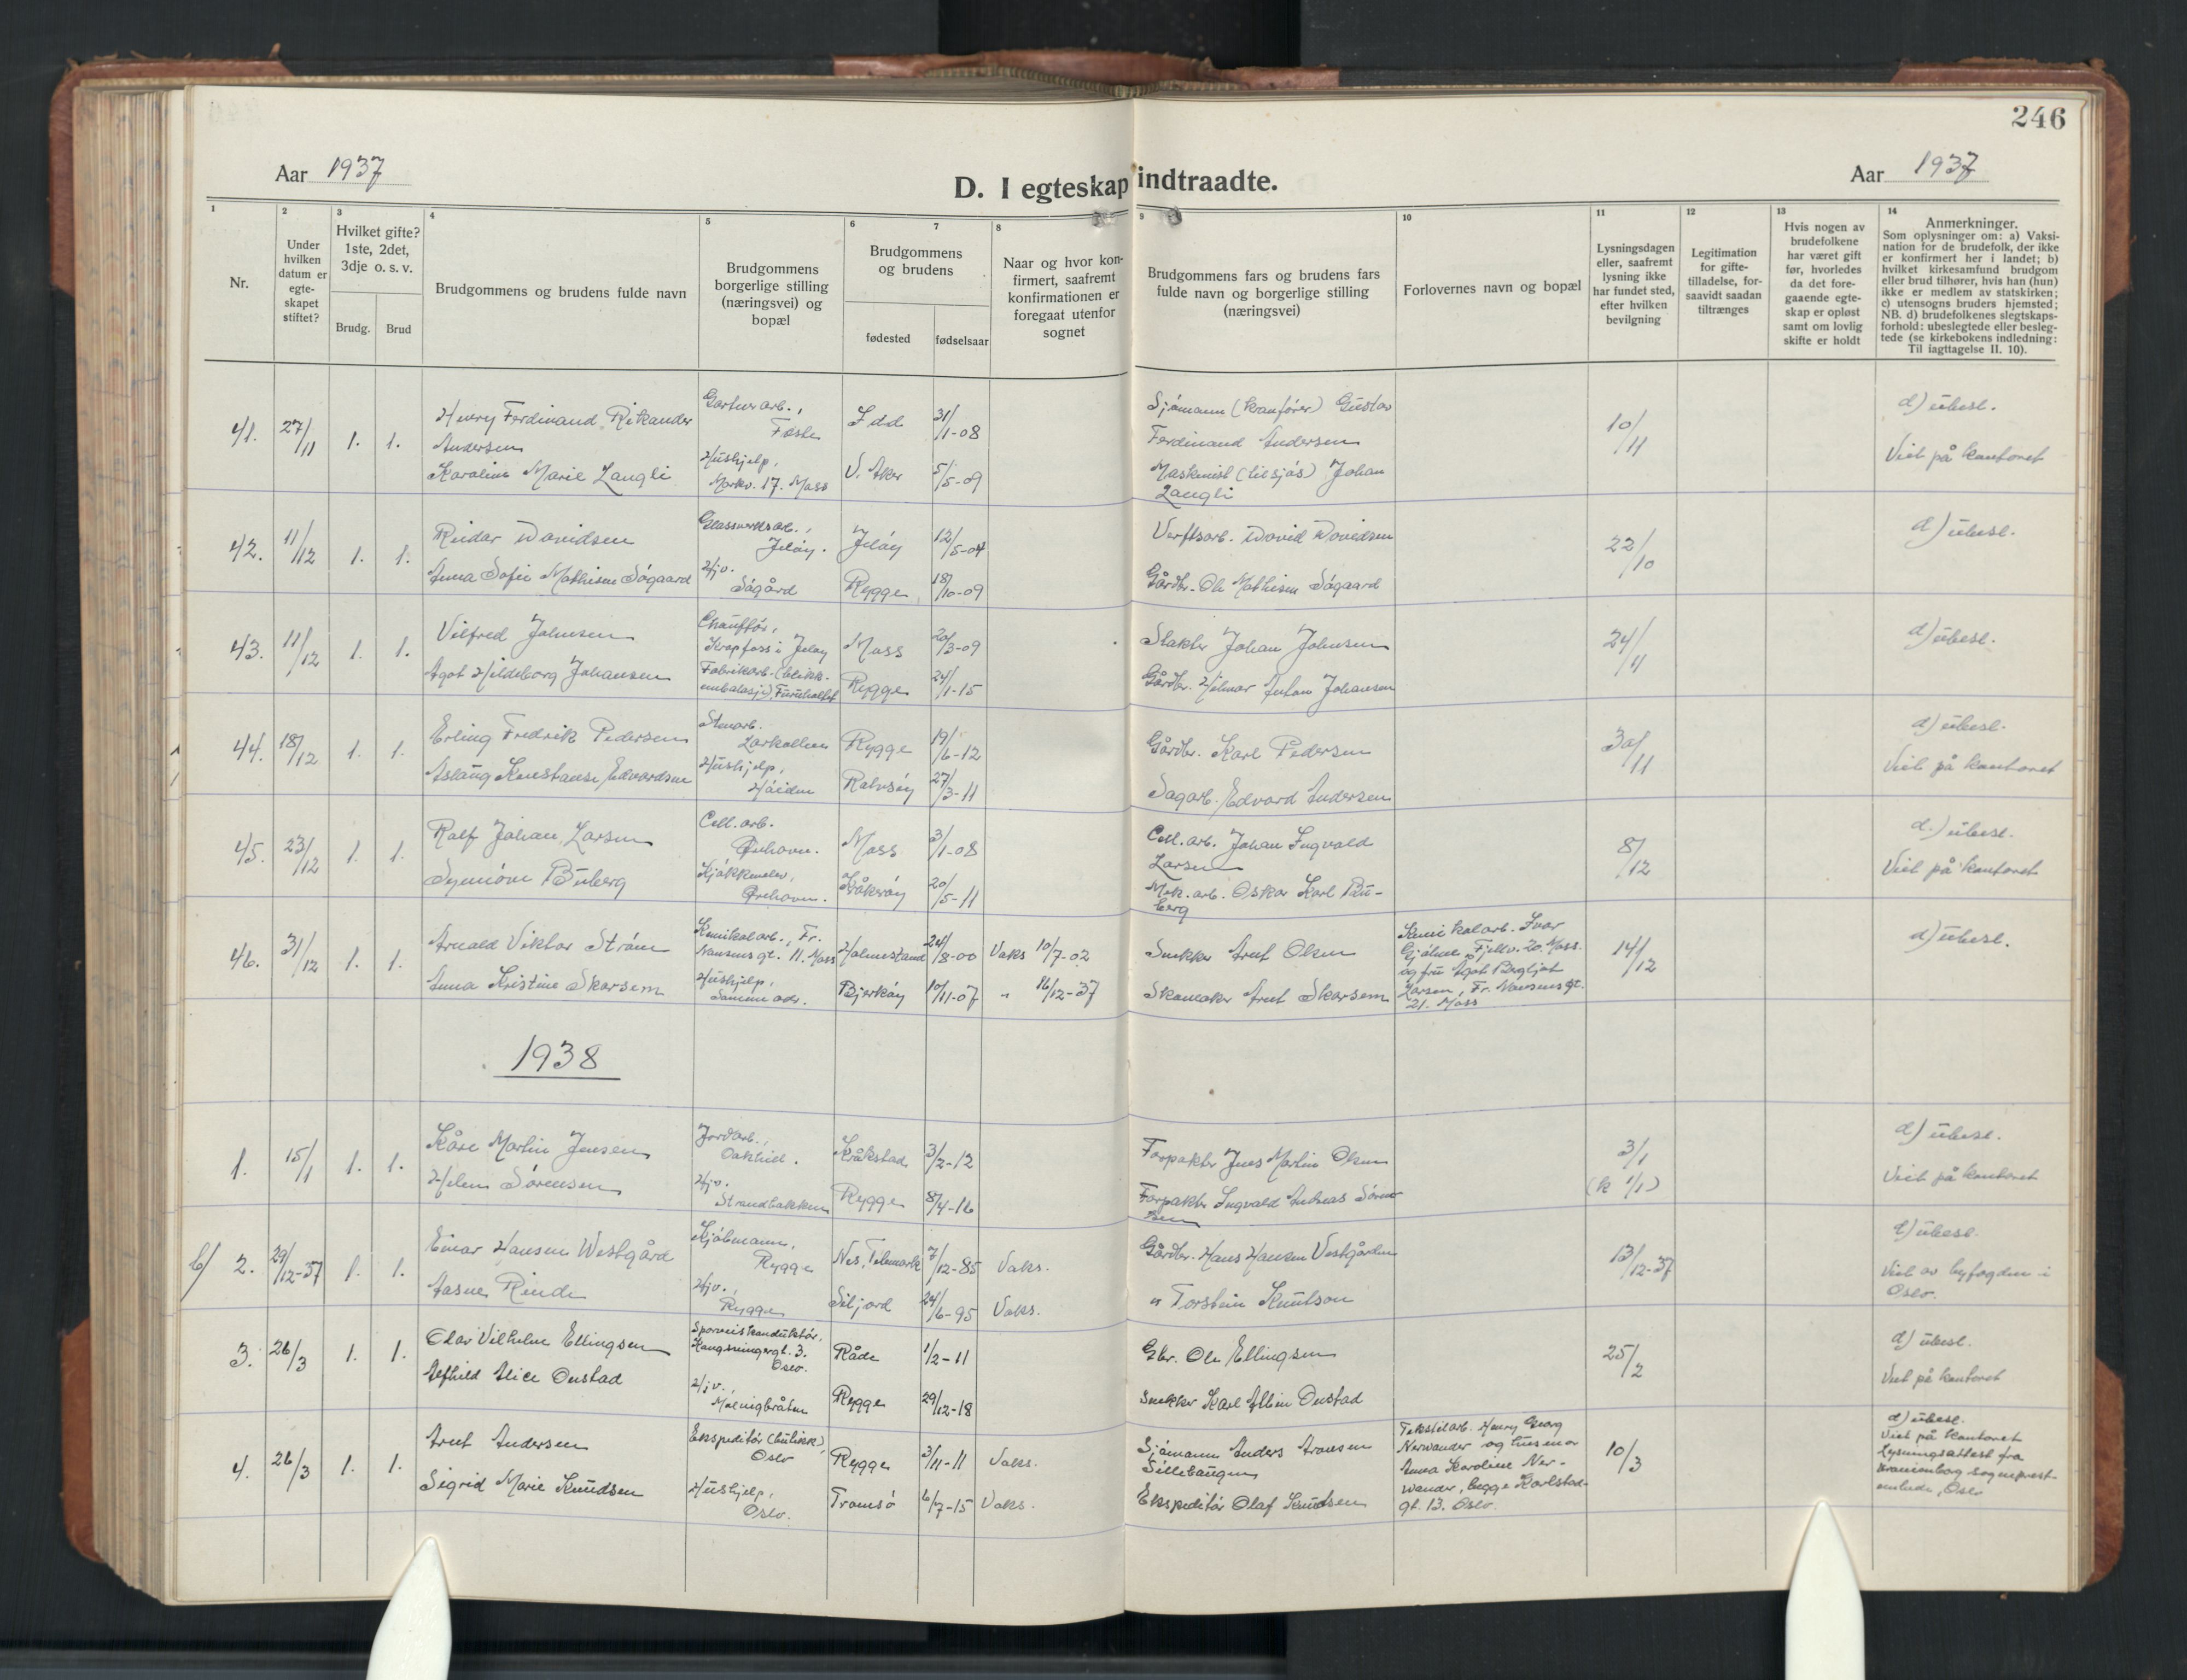 246
Aar 1937
D. I egteskap indtraadte.
Aar 1937
1 2 3 4 5 6 7 8 9 10 11 12 13 14
Nr.
Under
hvilken
datum er
egte-
skapet
stiftet?
Hvilket gifte?
1ste, 2det,
3dje o. s. v.
Brudg. Brud
Brudgommens og brudens fulde navn
Brudgommens
borgerlige stilling
(næringsvei) og
bopæl
Brudgommens
og brudens
fødested fødselsaar
Naar og hvor kon-
firmert, saafremt
konfirmationen er
foregaat utenfor
sognet
Brudgommens fars og brudens fars
fulde navn og borgerlige stilling
(næringsvei)
Forlovernes navn og bopæl
Lysningsdagen
eller, saafremt
lysning ikke
har fundet sted,
efter hvilken
bevilgning
Legitimation
for gifte-
tilladelse, for-
saavidt saadan
tiltrænges
Hvis nogen av
brudefolkene
har været gift
før, hvorledes
da det fore-
gaaende egte-
skap er opløst
samt om lovlig
skifte er holdt
Anmerkninger.
Som oplysninger om: a) Vaksi-
nation for de brudefolk, der ikke
er konfirmert her i landet; b)
hvilket kirkesamfund brudgom
eller brud tilhører, hvis han (hun)
ikke er medlem av statskirken;
c) utensogns bruders hjemsted;
NB. d) brudefolkenes slegtskaps-
forhold: ubeslegtede eller besleg-
tede (se kirkebokens indledning:
Til iagttagelse II. 10).
41. 27/11 1. 1.
Henry Ferdinand Rikander
Andersen
Karoline Marie Langli
Gartnerarb.,
Hushjelp,
Markv. 17. Moss
Idd 31/1-08
V. Aker 5/5-09
Sjømann (kranfører) Gustav
Ferdinand Andersen
Maskinist (tilsjøs) Johan
Langli
10/11
d) ubesl.
Viet på kontoret
42. 11/12 1. 1.
Reidar Davidsen
Anna Sofie Mathisen Søgaard
Glassverksarb.,
Jeløy.
Hjv.
Søgård
Jeløy 12/5-04
Rygge 18/10-09
Verftsarb. David Davidsen
Gårdbr. Ole Mathisen Søgaard
22/10
d) ubesl.
43. 11/12 1. 1.
Vilfred Johnsen
Agot Hildeborg Johansen
Chauffør,
Krapfoss i Jeløy
Fabrikarb. (blikk-
embalasje), Furuholtet
Moss 20/3-09
Rygge 24/1-15
Slakter Johan Johnsen
Gårdbr. Hilmar Anton Johansen
24/11
d) ubesl.
44. 18/12 1. 1.
Erling Fredrik Pedersen
Aslaug Konstanse Edvardsen
Stenarb.
Larkollen
Hushjelp,
Håiden
Rygge 19/6-12
Rolvsøy 27/3-11
Gårdbr. Karl Pedersen
Sagarb. Edvard Andersen
30/11
d) ubesl.
Viet på kontoret
45. 23/12 1. 1.
Rolf Johan Larsen
Synnøve Buberg
Cell. arb.
Ørehavn.
Kjøkkenelev,
Ørehavn.
Moss 3/1-08
Kråkerøy 20/5-11
Cell. arb. Johan Ingvald
Larsen
Mek. arb. Oskar Karl Bu-
berg
8/12
d.) ubesl.
Viet på kontoret
46. 31/12 1. 1.
Arnald Viktor Strøm
Anna Kristine Skarsem
Kemikalarb., Fr.
Nansens gt. 11. Moss
Hushjelp,
Samme adr.
Holmestrand 24/8-00 Vaks 10/7-02
Bjerkøy 10/11-07 " 16/12-37
Snekker Arnt Olsen
Skomaker Arnt Skarsem
Kemikalarb. Ivar
Gjølme, Fjellv. 20. Moss.
og fru Agot Bergljot
Larsen, Fr. Nansens gt.
21. Moss
14/12
d) ubesl.
1938
1. 15/1 1. 1.
Kåre Martin Jensen
Helene Sørensen
Jordarb.,
Hjv.
Strandbakken
Kråkstad 3/2-12
Rygge 8/4-16
Forpakter Jens Martin Olsen
Forpakter Ingvald Andreas Søren-
sen
3/1
(k 1/1)
d) ubesl.
Viet på kontoret
b/ 2. 29/12-37 1. 1.
Einar Hansen Westgård
Aasne Rinde
Kjøbmann,
Rygge
Hjv.,
Rygge
Nes, Telemark 7/12-85 Vaks.
Siljord 24/6-95 Vaks.
Gårdbr. Hans Hansen Vestgården
" Torstein Knutson
13/12-37
d) ubesl.
Viet av byfogden i
Oslo.
3. 26/3 1. 1.
Olav Vilhelm Ellingsen
Alfhild Alice Onstad
Sporveiskonduktør,
Kongsvingergt. 3.
Oslo.
Hjv.,
Råde 1/2-11
Rygge 29/12-18
Gbr. Ole Ellingsen
Snekker Karl Albin Onstad
25/2
d) ubesl.
Viet på kontoret
4. 26/3 1. 1.
Arnt Andersen
Sigrid Marie Knudsen
Ekspeditør (butikk),
Oslo
Hushjelp,
Oslo.
Rygge 3/11-11 Vaks.
Tromsø 6/7-15 Vaks.
Sjømann Anders Aronsen
Sillebaugen
Ekspeditør Olaf Knudsen
Tekstilarb. Henry Georg
Nerwander og husmor
Anna Karoline Ner-
wander, begge Karlstad-
gt. 13. Oslo.
10/3
d) ubesl.
Viet på kontoret
Lysningsattest fra
Uranienborg sogneprest-
embede, Oslo